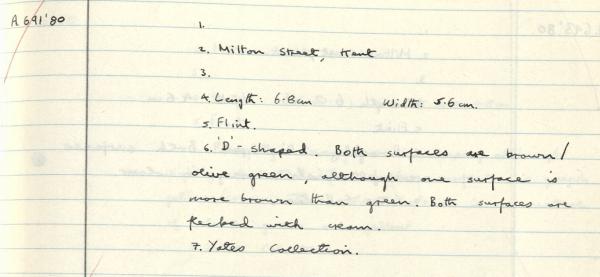 A 641'80
1.
2. Milton Street, Kent
3.
4. Length: 6.8cm Width: 5.6cm.
5. Flint.
6. 'D'- shaped. Both surfaces are brown/
olive green, although one surface is
more brown than green. Both surfaces are
flecked with cream.
7. Yates Collection.